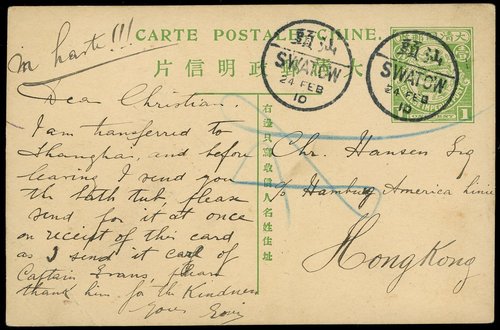 CARTE POSTALE CHINE.
大清郵政明信片
in haste!!!
SWATOW
24 FEB
10
SWATOW
24 FEB
10
1
右邊只寫收信人名姓住址
Dear Christian.
I am transferred to
Shanghai, and before
leaving I send you
the bath tub, please
send for it at once
on receipt of this card
as I send it care of
Captain Evans, please
thank him for the kindness
Yours
Chr. Hansen Esq
c/o Hamburg America Linie
HongKong